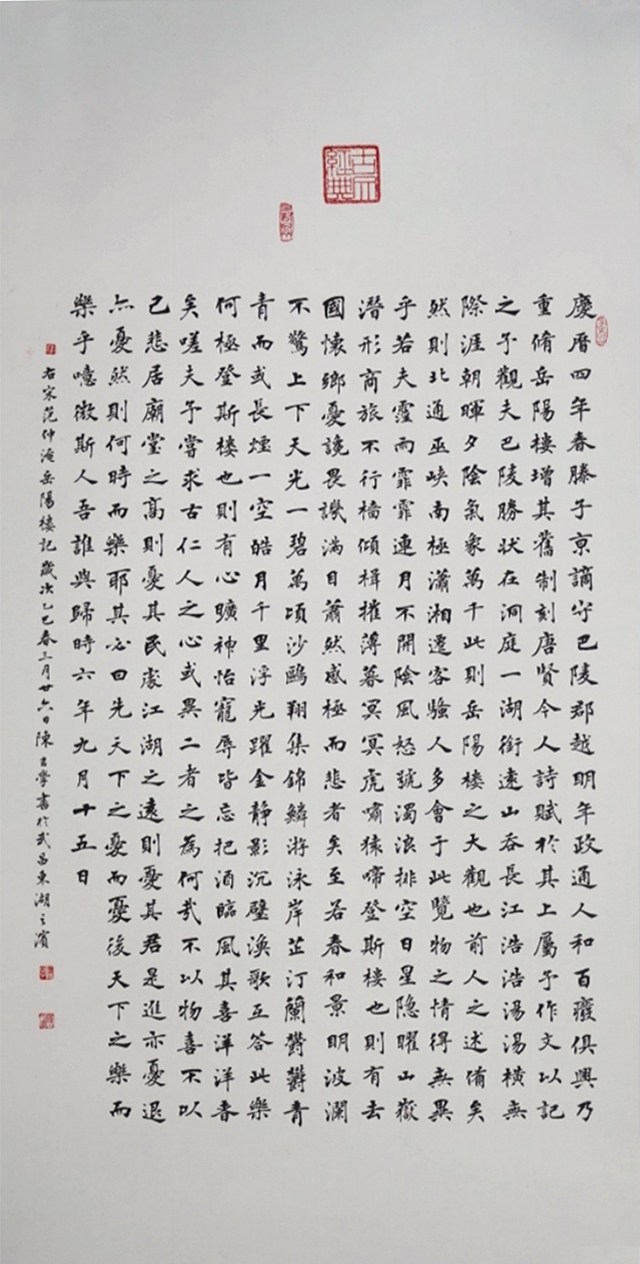 經典
慶曆四年春滕子京謫守巴陵郡越明年政通人和百廢俱興乃
重脩岳陽樓增其舊制刻唐賢今人詩賦於其上屬予作文以記
之予觀夫巴陵勝狀在洞庭一湖銜遠山吞長江浩浩湯湯橫無
際涯朝暉夕陰氣象萬千此則岳陽樓之大觀也前人之述備矣
然則北通巫峽南極瀟湘遷客騷人多會于此覽物之情得無異
乎若夫霪雨霏霏連月不開陰風怒號濁浪排空日星隱曜山嶽
潛形商旅不行檣傾楫摧薄暮冥冥虎嘯猿啼登斯樓也則有去
國懷鄉憂讒畏譏滿目蕭然感極而悲者矣至若春和景明波瀾
不驚上下天光一碧萬頃沙鷗翔集錦鱗游泳岸芷汀蘭鬱鬱青
青而或長煙一空皓月千里浮光躍金静影沉璧漁歌互答此樂
何極登斯樓也則有心曠神怡寵辱皆忘把酒臨風其喜洋洋者
矣嗟夫予嘗求古仁人之心或異二者之為何哉不以物喜不以
己悲居廟堂之高則憂其民處江湖之遠則憂其君是進亦憂退
亦憂然則何時而樂耶其必曰先天下之憂而憂後天下之樂而
樂乎噫微斯人吾誰與歸時六年九月十五日
右宋范仲淹岳陽樓記歲次乙巳春三月廿六日陳學書於武昌東湖之濱